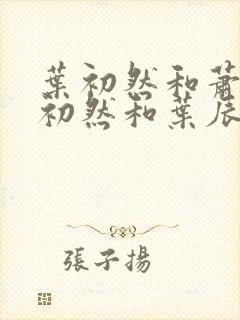 葉初然和蕭
初然和葉辰
張子揚